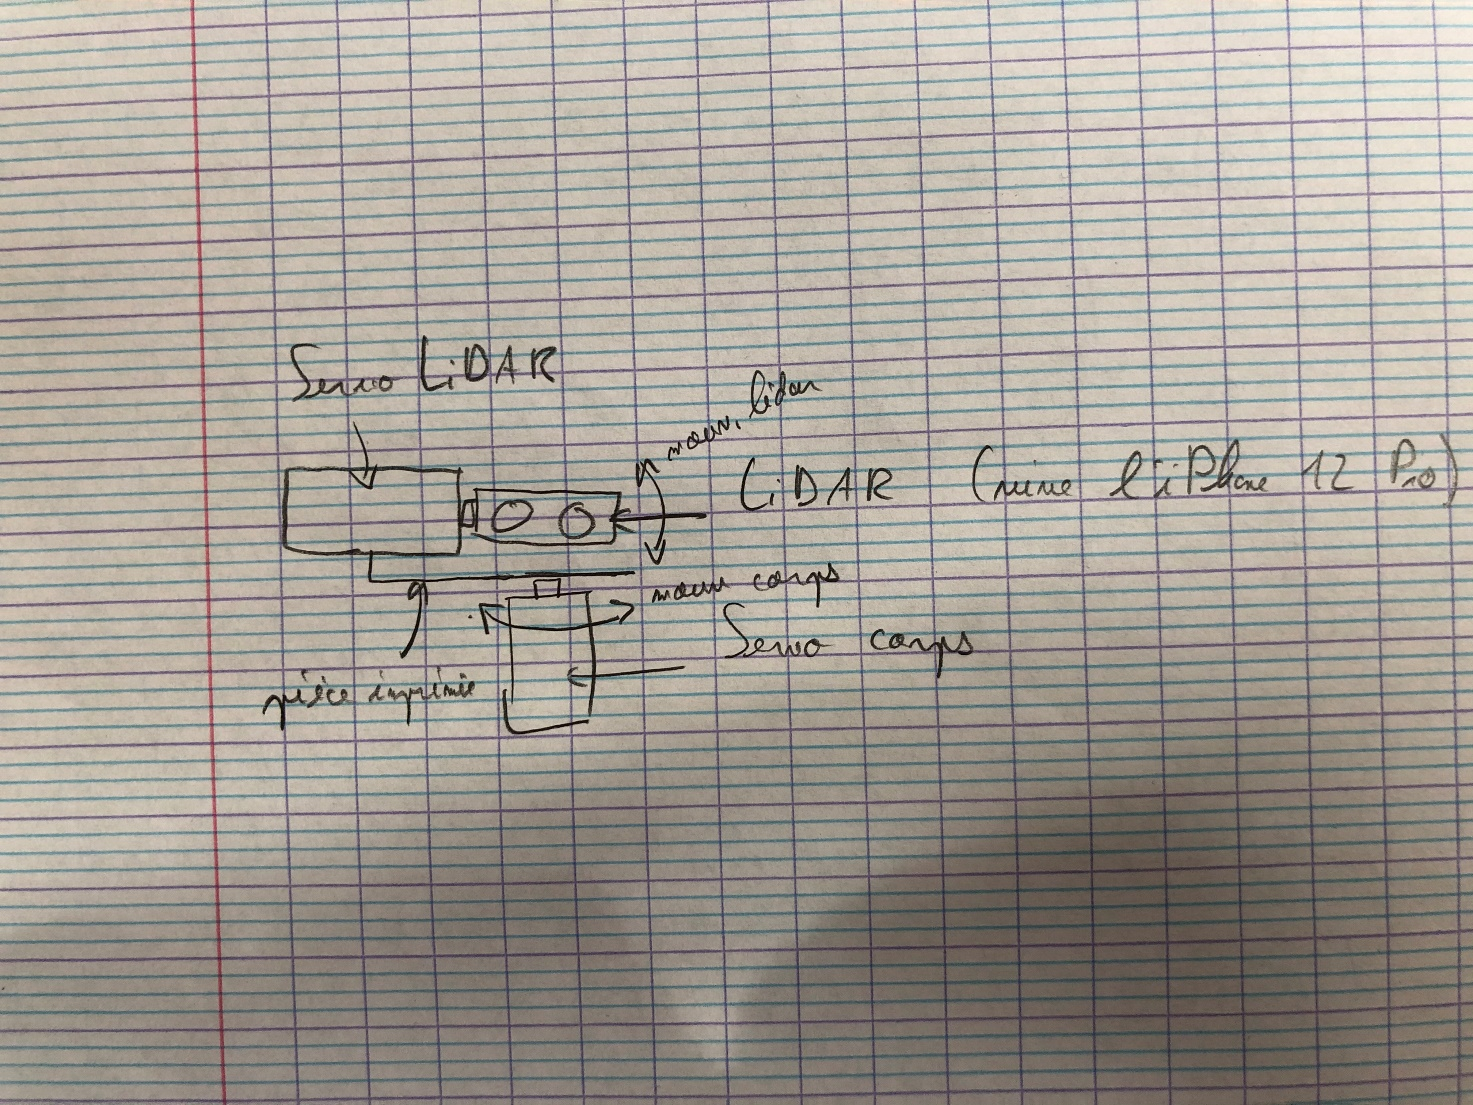 Servo LiDAR
mouv. lidar
LiDAR (nine l'iPhone 12 Pro)
mouv corps
Servo corps
pièce imprimée